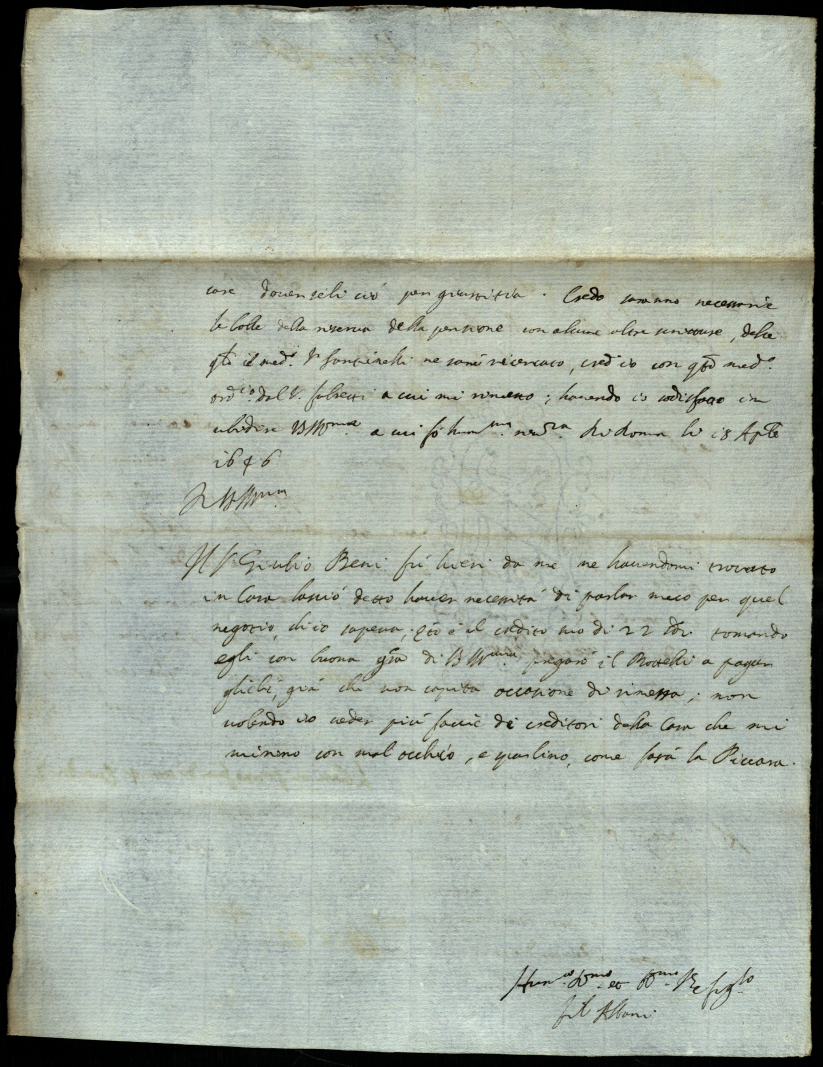 care douerseli ciò per giustitia. Credo saranno necessarie
le bolle della riserva della pensione con alcune altre scritture, delle
q̃li il med.º S.r Santinelli ne sarà ricercato, cred'io con q̃to med.º
ord.rio dal S.r Fabretti a cui mi rimetto; havendo io sodisfatto in
ubidire VS Ill.ma a cui fò hum.ma riu.za Di Roma li 18 Ap.le
1646
Di VS Ill.ma
Il S.r Giulio Beni fù hieri da me, ne havendomi trovato
in Casa lasciò detto haver necessità di parlar meco per quel
negotio, ch'io sapeva; q̃to è il credito suo di 22 tornando
egli con buona gr̃a di VS Ill.ma pregarò il Rosselli a pagar
glieli, già che non capita occasione di rimessa; non
volendo io veder più faccie di creditori della Casa che mi
mirino con mal occhio, e parlino, come farà la
Hum.º D.mo et Obb.mo Re fig.lo
Albani